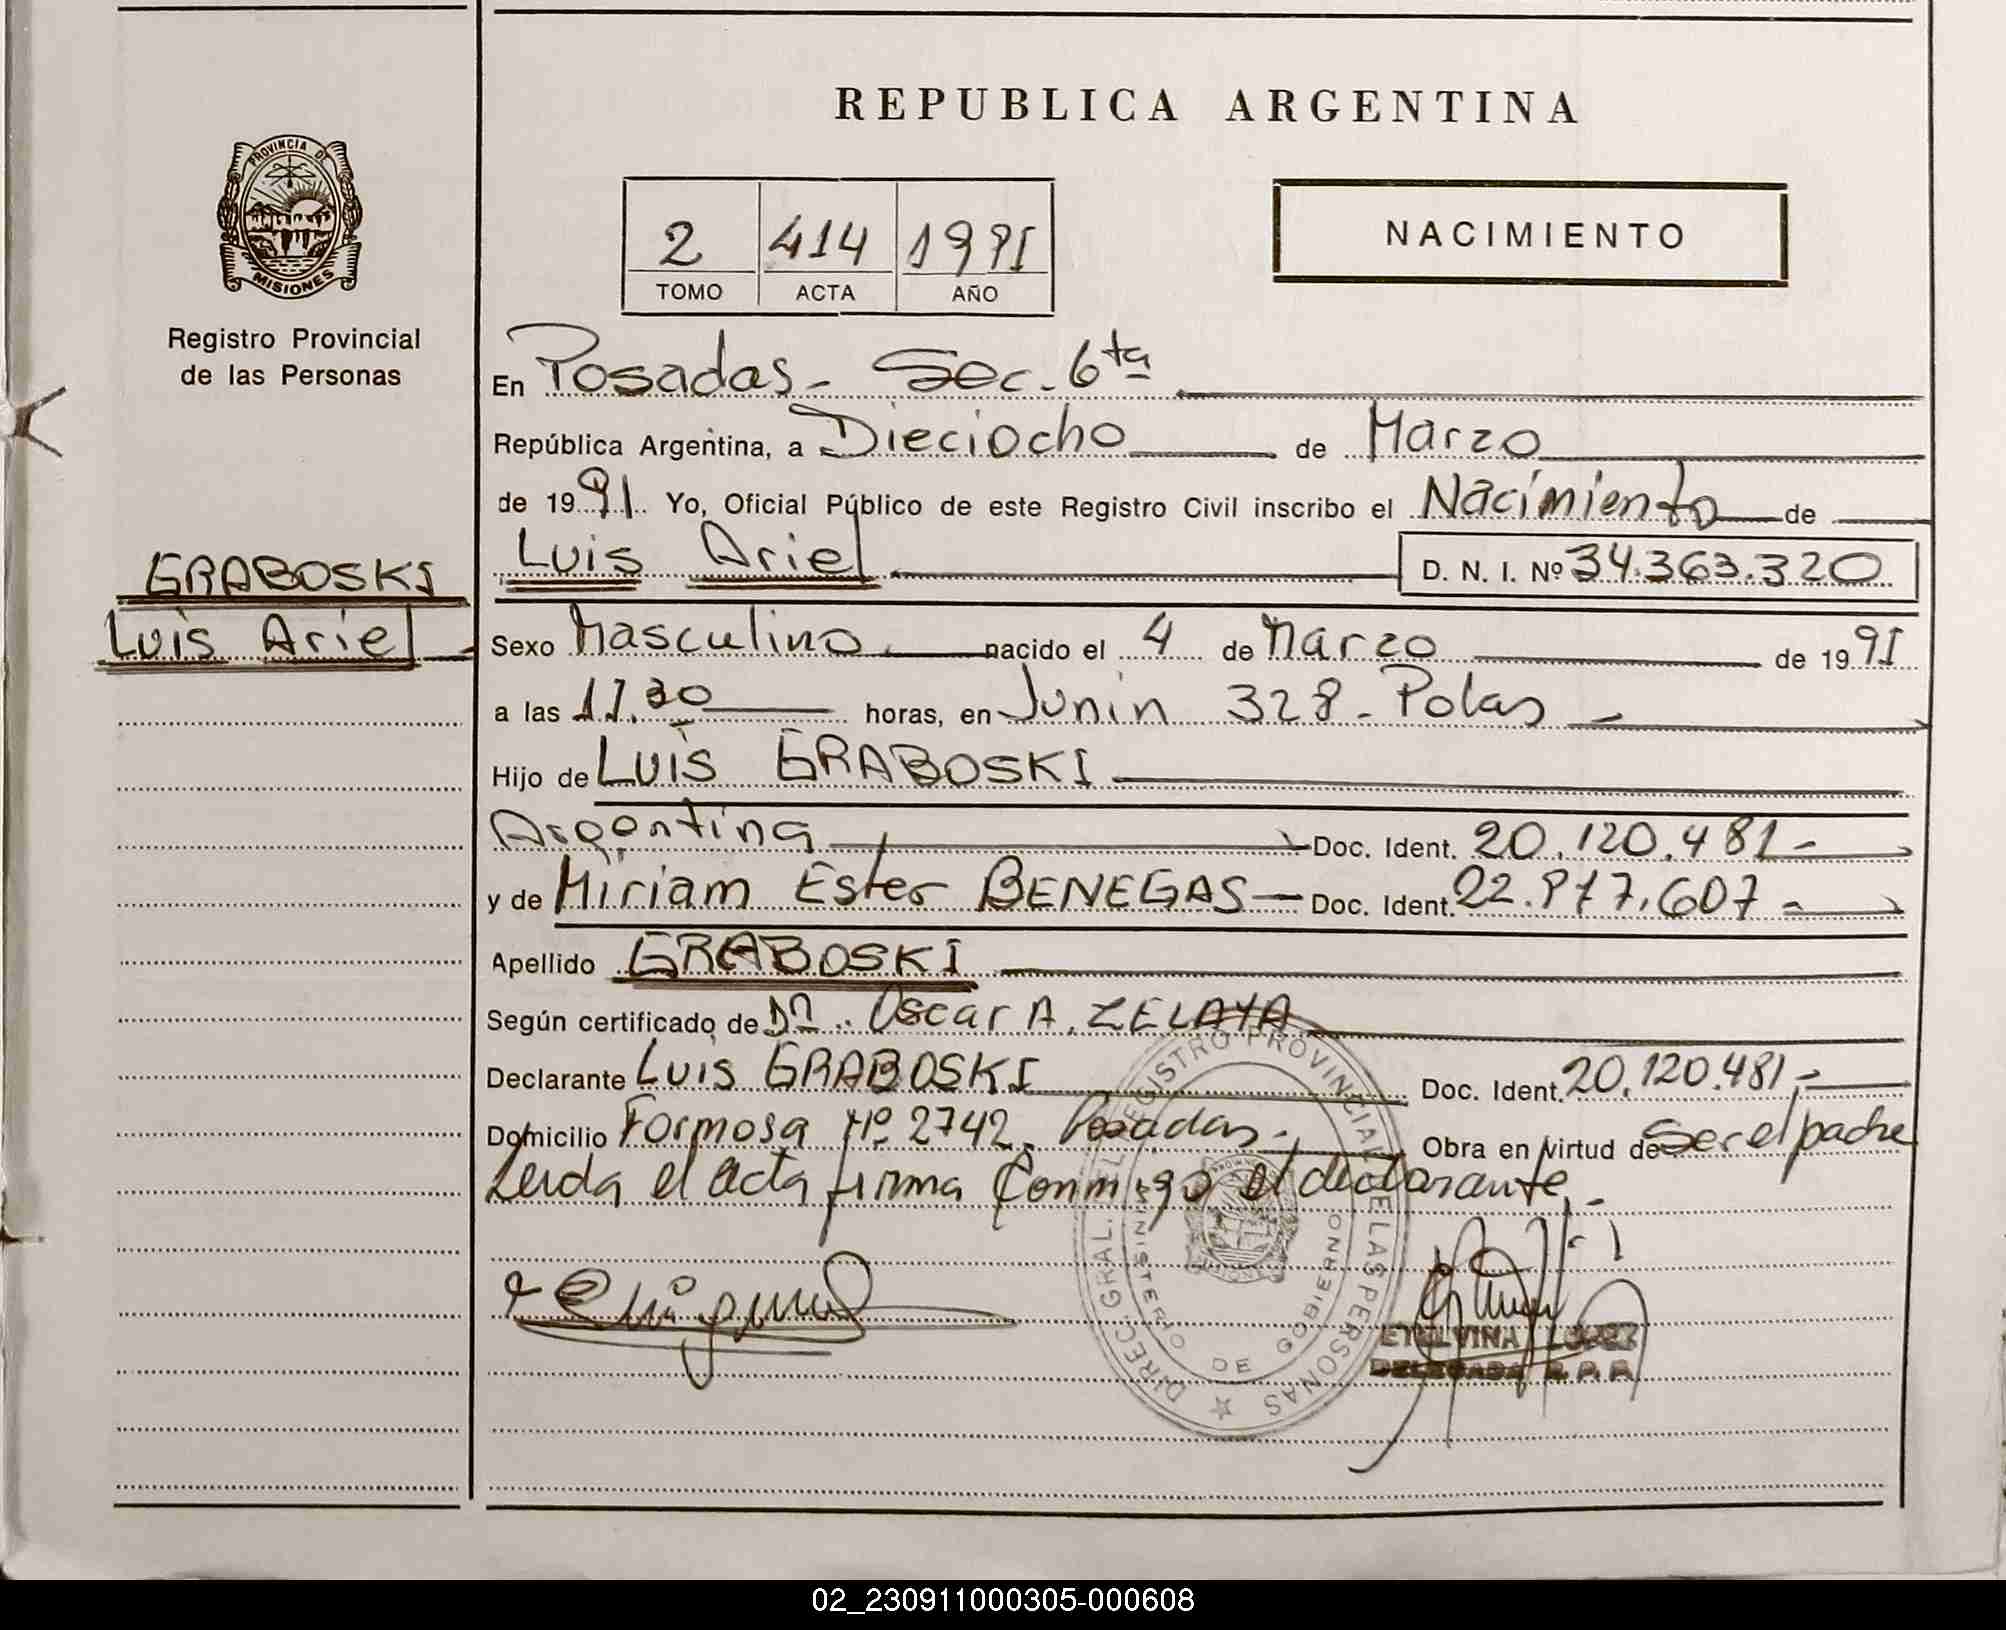 REPUBLICA ARGENTINA
PROVINCIA DE
MISIONES
Registro Provincial
de las Personas
2 414 1991
TOMO ACTA AÑO
NACIMIENTO
En Posadas - Sec. 6ta
República Argentina, a Dieciocho de Marzo
de 1991 Yo, Oficial Público de este Registro Civil inscribo el Nacimiento de
Luis Ariel D. N. I. Nº 34.363.320
GRABOSKI
Luis Ariel
Sexo Masculino nacido el 4 de Marzo de 1991
a las horas, en Junin 328 - Pdas
Hijo de Luis GRABOSKI
Argentina Doc. Ident. 20.120.481 -
y de Miriam Ester BENEGAS Doc. Ident.
Apellido GRABOSKI
Según certificado de Oscar A. ZELAYA
Declarante Luis GRABOSKI Doc. Ident. 20.120.481 -
Domicilio Formosa Nº 2742 - Posadas - Obra en virtud de Ser el padre
Leida el acta firma Conmigo el declarante. -
DIREC. GRAL. DEL REGISTRO PROVINCIAL DE LAS PERSONAS
MINISTERIO DE GOBIERNO
ETELVINA LOPEZ
DELEGADA R. P. P.
02_230911000305-000608